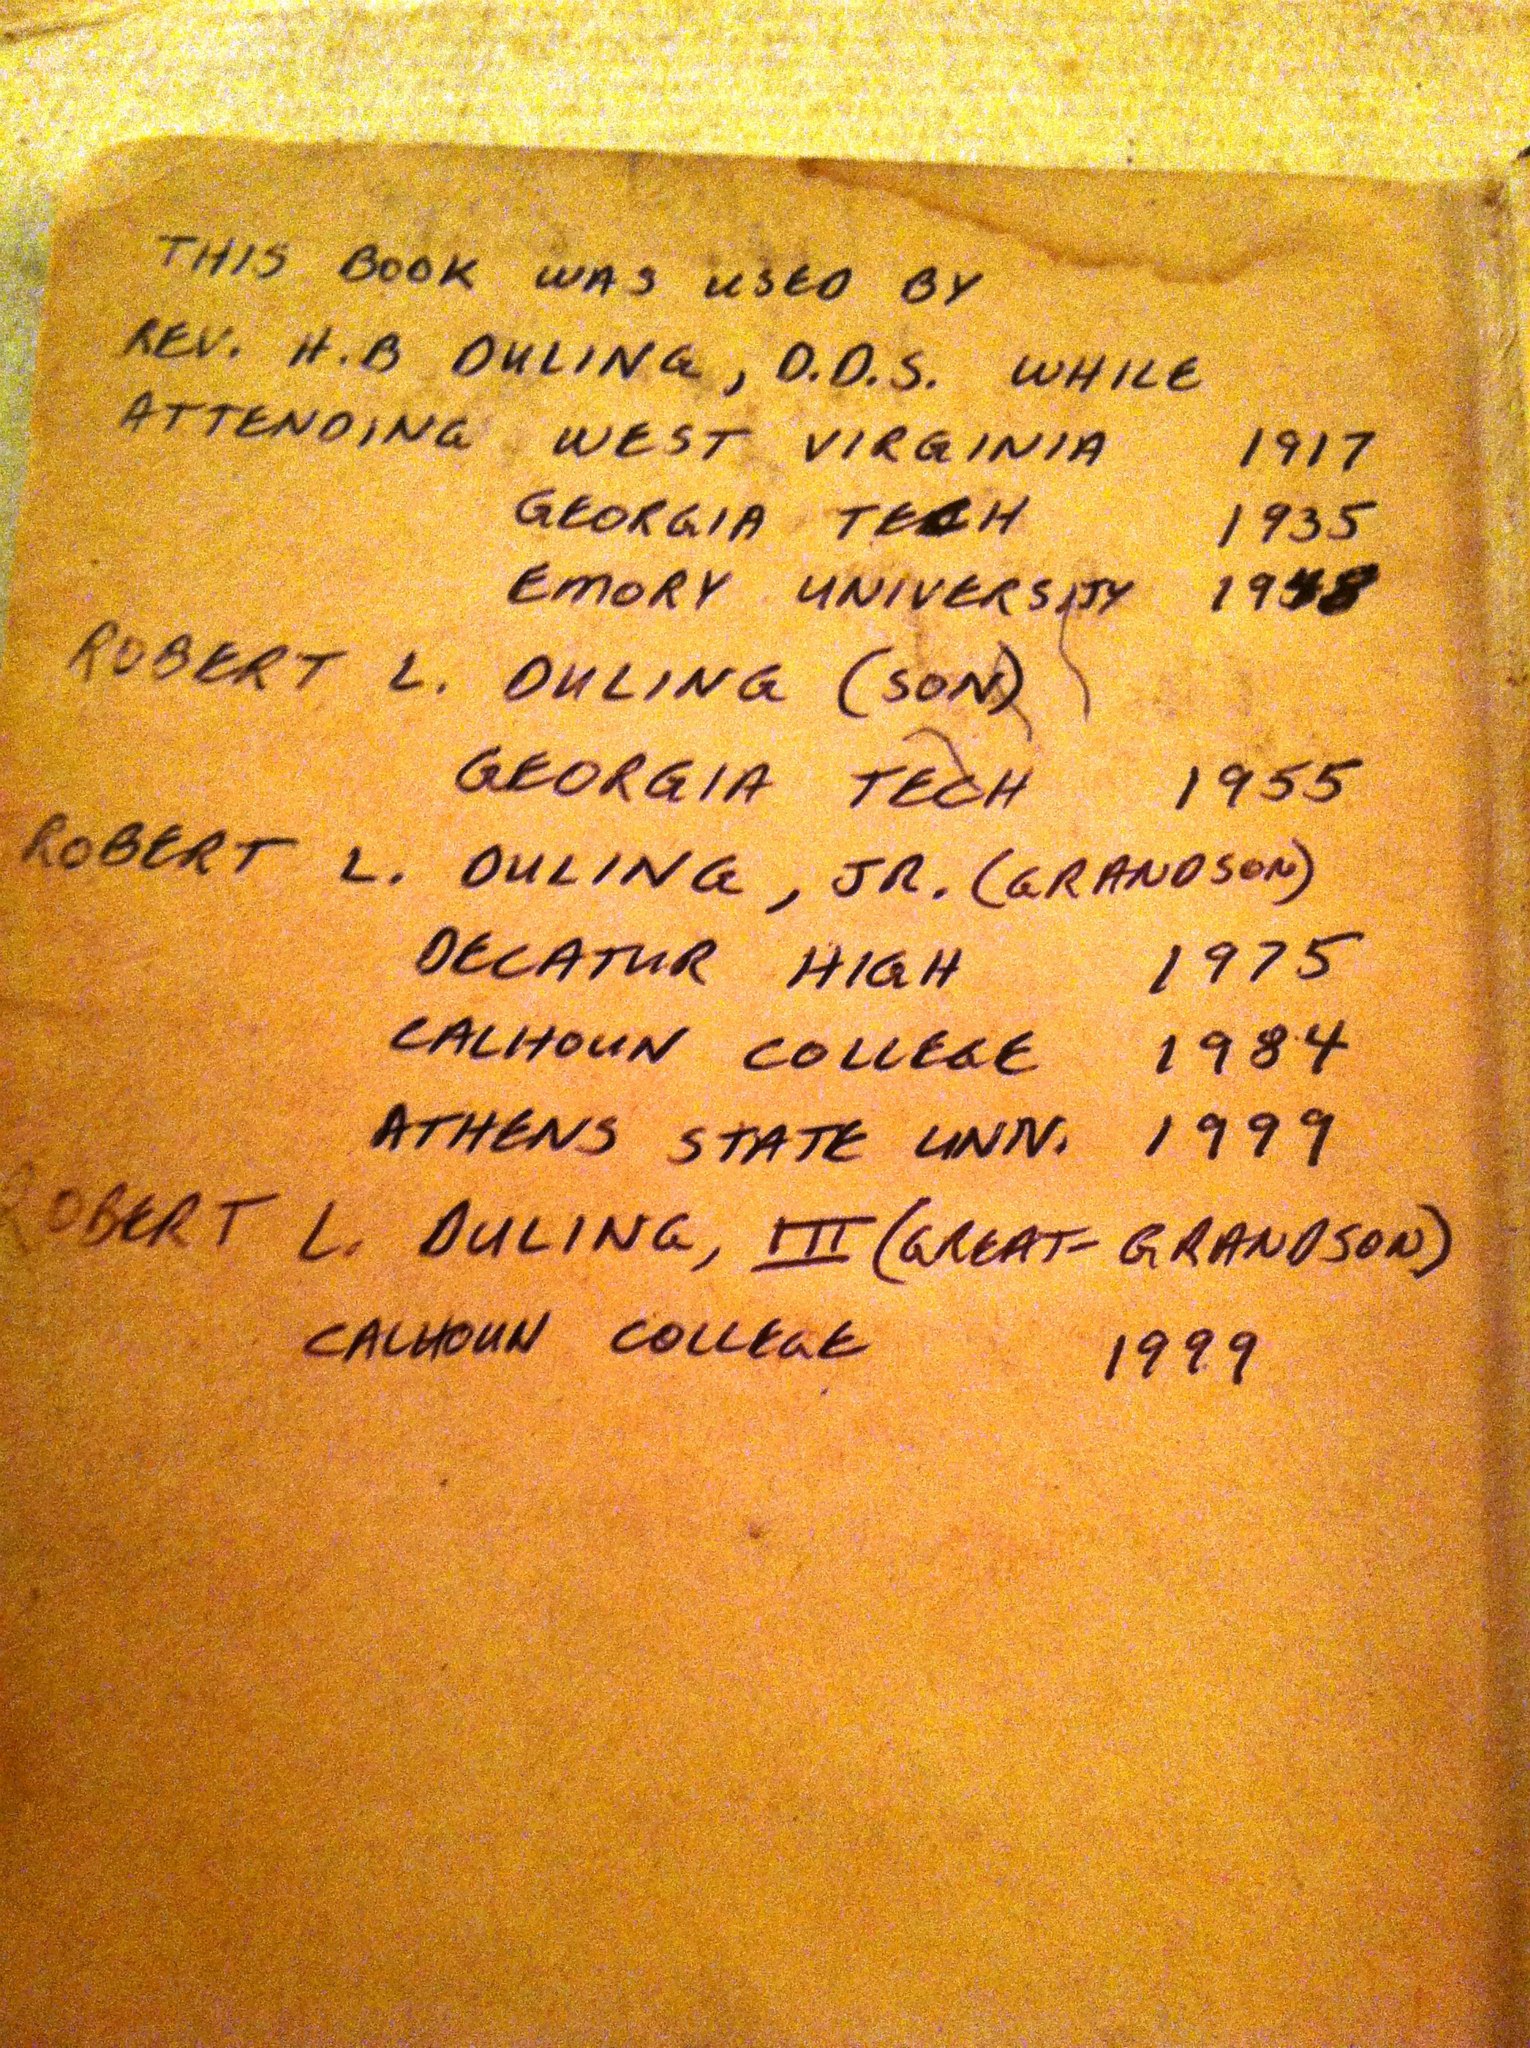 THIS BOOK WAS USED BY
REV. H.B DULING, D.D.S. WHILE
ATTENDING WEST VIRGINIA 1917
GEORGIA TECH 1935
EMORY UNIVERSITY 1948
ROBERT L. DULING (SON)
GEORGIA TECH 1955
ROBERT L. DULING, JR. (GRANDSON)
DECATUR HIGH 1975
CALHOUN COLLEGE 1984
ATHENS STATE UNIV. 1999
ROBERT L. DULING, III (GREAT-GRANDSON)
CALHOUN COLLEGE 1999